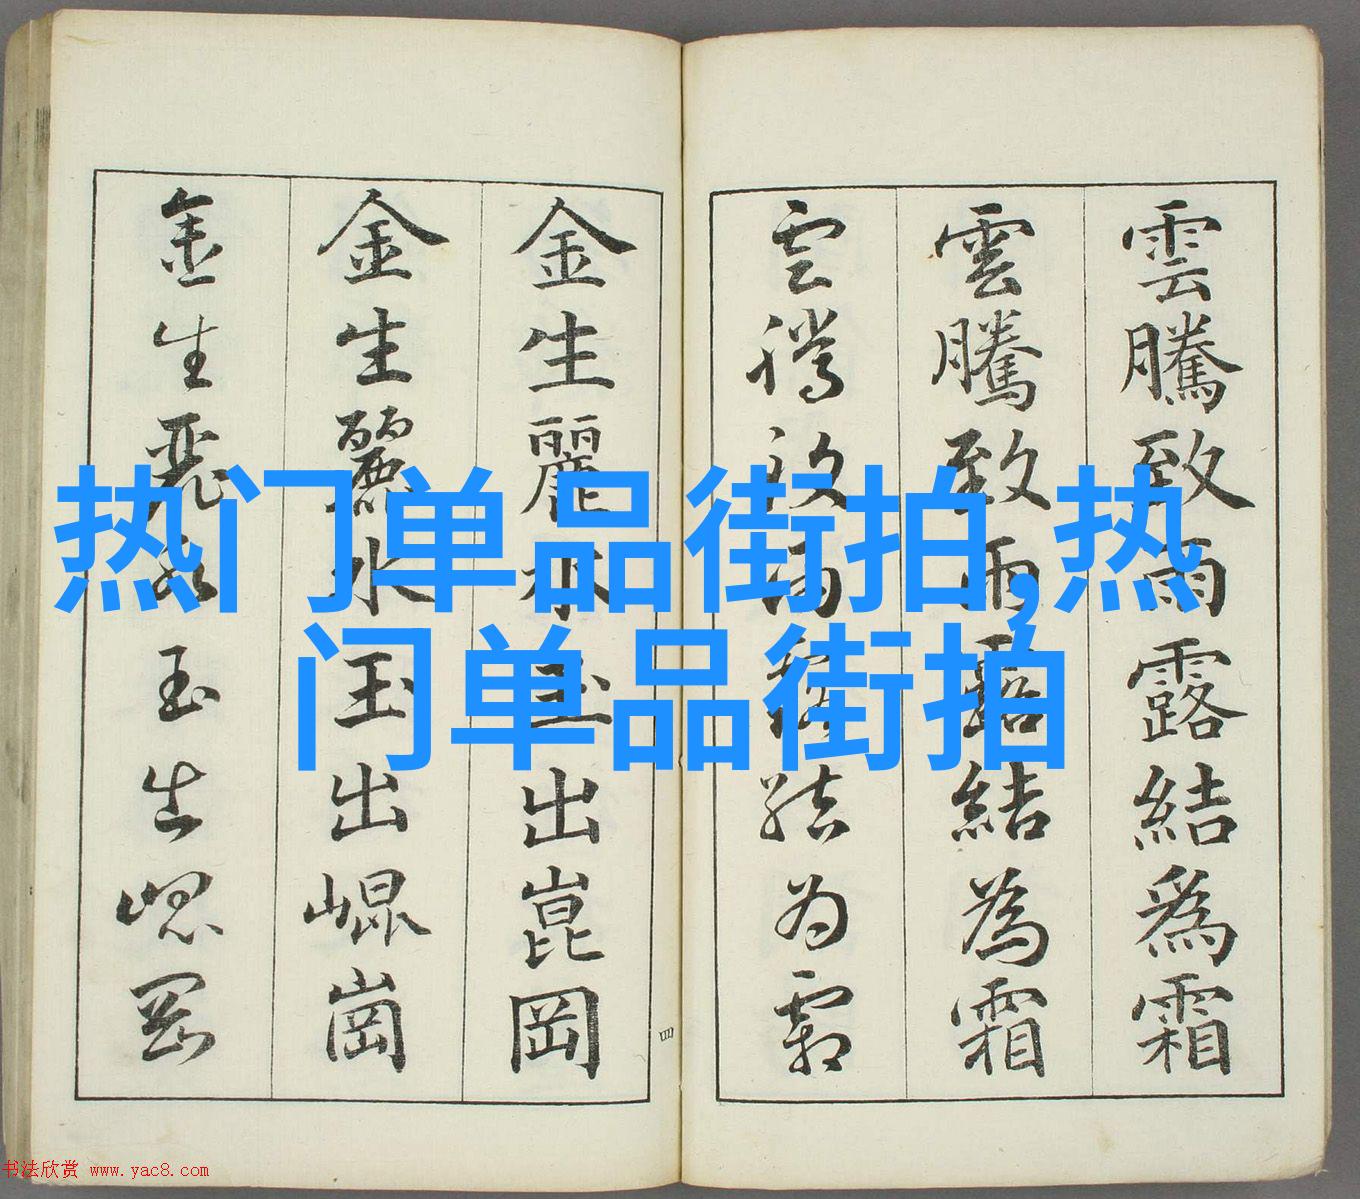 雲騰致雨露結爲霜
雲騰致雨露結為霜
雲騰致雨露結为霜
金生麗水玉出崑岡
金生麗水玉出崐崗
金生麗水玉出崐岡
四
热门单品街拍,热
门单品街拍
书法欣赏 www.yac8.com